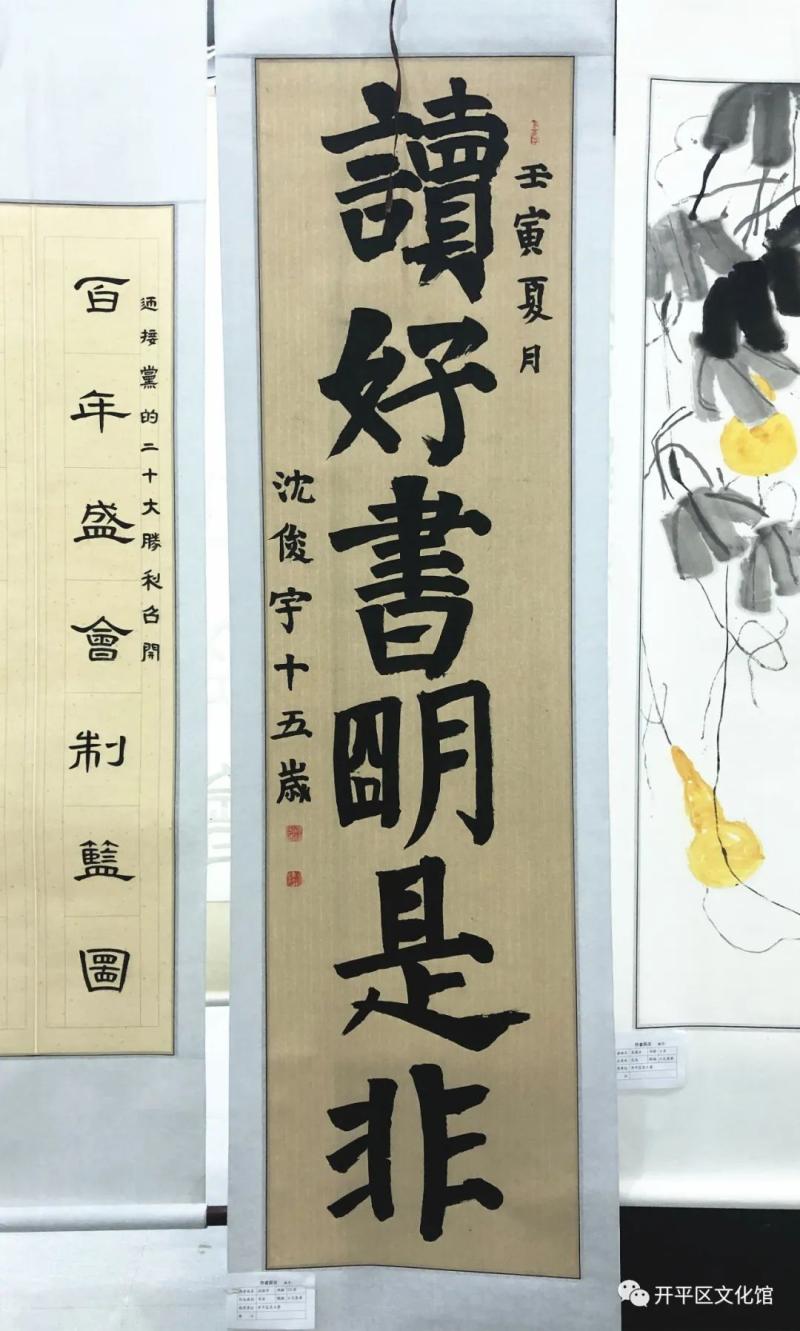 迎接黨的二十大勝利召開
百年盛會制籃圖
壬寅夏月
讀好書明是非
沈俊宇十五歲
开平区文化馆